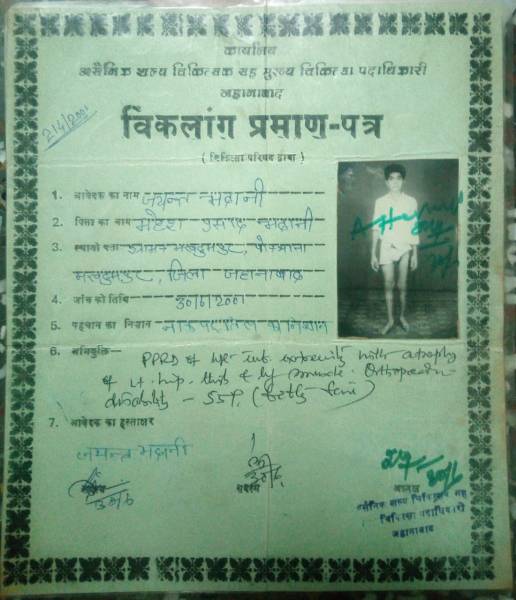 कार्यालय
असैनिक शल्य चिकित्सक सह मुख्य चिकित्सा पदाधिकारी
जहानाबाद
2/4/2001
विकलांग प्रमाण-पत्र
( चिकित्सा परिषद द्वारा )
1. आवेदक का नाम जयन्त भदानी
2. पिता का नाम महेश प्रसाद भदानी
3. स्थायी पता ग्राम मखदुमपुर, पो०थाना
मखदुमपुर, जिला जहानाबाद
4. जाँच की तिथि 30/6/2001
5. पहचान का निशान नाक पर तिल का निशान
6. अभियुक्ति— PPRD of extremity with atrophy
of Lt. hip, thigh & leg muscle. Orthopaedic
disability — 55% (fifty five)
7. आवेदक का हस्ताक्षर
जयन्त भदानी
सदस्य
30/6
सदस्य
30/6
अध्यक्ष
असैनिक शल्य चिकित्सक सह
चिकित्सा पदाधिकारी
जहानाबाद